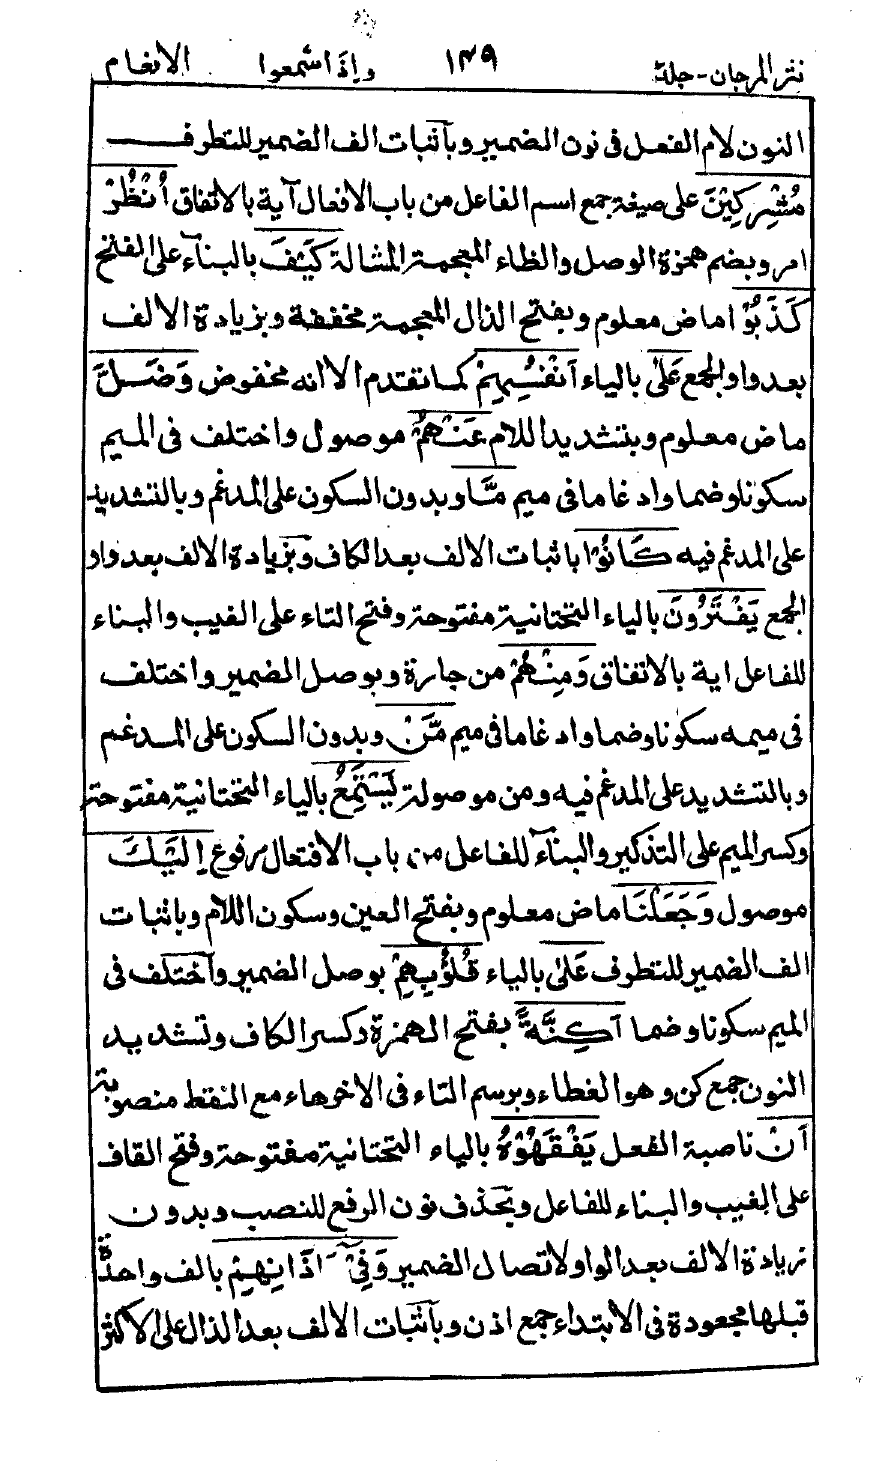 نثر المرجان - جلد ۲ ١٣٩ واذا سمعوا الانعام
النون لام الفعل فى نون الضمير وبآثبات الف الضمير للتطرف
مُشْرِكِيْنَ على صيغة جمع اسم الفاعل من باب الافعال آية بالاتفاق اُنْظُرْ
امر وبضم همزة الوصل والظاء المعجمة المشالة كَيْفَ بالبنآء على الفتح
كَذَبُوْا ماض معلوم وبفتح الذال المعجمة مخففة وبزيادة الالف
بعد واو الجمع عَلٰى بالياء اَنْفُسِهِمْ كما تقدم الا انه مخفوض وَضَلَّ
ماض معلوم وبتشديد اللام عَنْهُمْ موصول واختلف فى الميم
سكونا وضما وادغاما فى ميم مَّا وبدون السكون على المدغم وبالتشديد
على المدغم فيه كَانُوْا باثبات الالف بعد الكاف وبزيادة الالف بعد واو
الجمع يَفْتَرُوْنَ بالياء التحتانية مفتوحة وفتح التاء على الغيب والبناء
للفاعل اية بالاتفاق وَمِنْهُمْ من جارة وبوصل الضمير واختلف
فى ميمه سكونا وضما وادغاما فى ميم مَّنْ وبدون السكون على المدغم
وبالتشديد على المدغم فيه ومن موصولة يَسْتَمِعُ بالياء التحتانية مفتوحة
وكسر الميم على التذكير والبنآء للفاعل من باب الافتعال مرفوع اِلَيْكَ
موصول وَجَعَلْنَا ماض معلوم وبفتح العين وسكون اللام وباثبات
الف الضمير للتطرف عَلٰى بالياء قُلُوْبِهِمْ بوصل الضمير واختلف فى
الميم سكونا وضما اَكِنَّةً بفتح الهمزة وكسر الكاف وتشديد
النون جمع كن وهو الغطاء وبرسم التاء فى الاخر هاء مع النقط منصوبة
اَنْ ناصبة الفعل يَفْقَهُوْهُ بالياء التحتانية مفتوحة وفتح القاف
على الغيب والبناء للفاعل وبحذف نون الرفع للنصب وبدون
زيادة الالف بعد الواو لاتصال الضمير وَفِيْٓ اٰذَانِهِمْ بالف واحدة
قبلها مجعودة فى الابتداء جمع اذن وبآثبات الالف بعد الذال على الاكثر